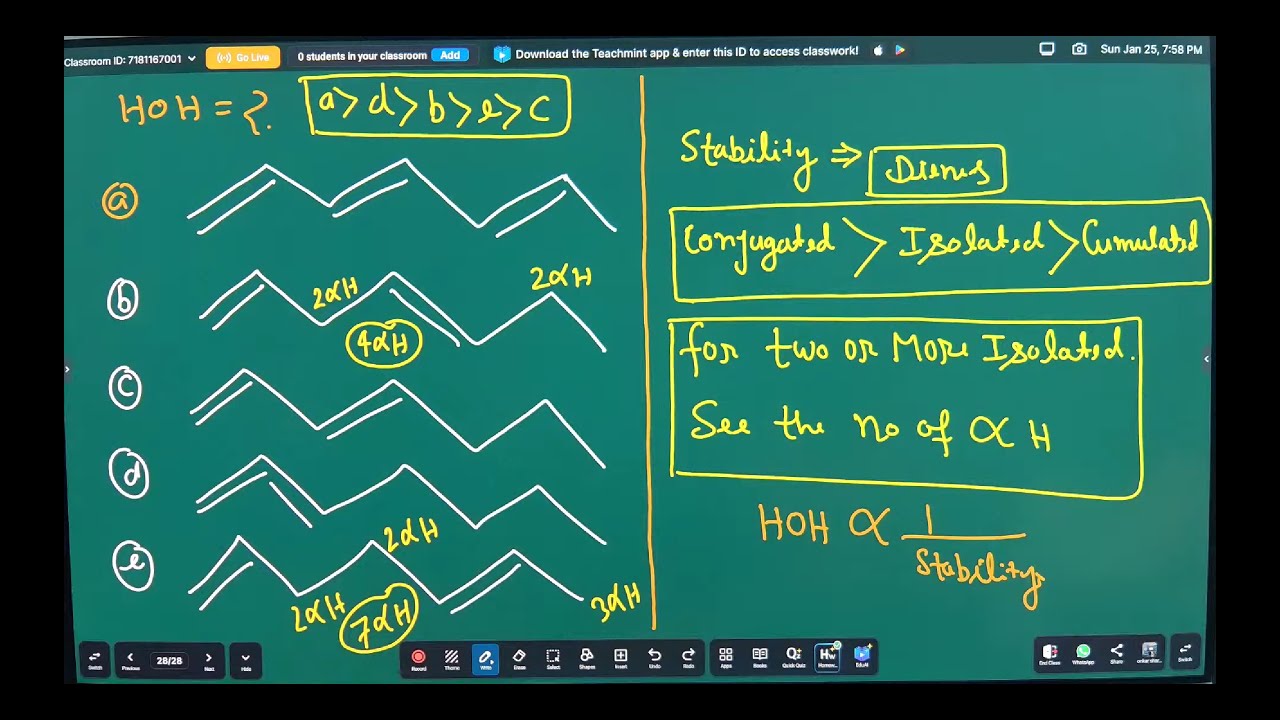 Classroom ID: 7181167001
Go Live
0 students in your classroom Add
Download the Teachmint app & enter this ID to access classwork!
Sun Jan 25, 7:58 PM
HOH = ?
a > d > b > e > c
a
b
2αH
4αH
2αH
c
d
e
2αH
2αH
7αH
3αH
Stability ⇒ Dienes
Conjugated > Isolated > Cumulated
for two or More Isolated.
See the no of α H
HOH ∝ 1
Stability
Switch
Previous
28/28
Next
Hide
Record
Theme
Write
Eraser
Select
Shapes
Insert
Undo
Redo
Apps
Books
Quick Quiz
Homew...
EduAI
End Class
WhatsApp
Share
Switch